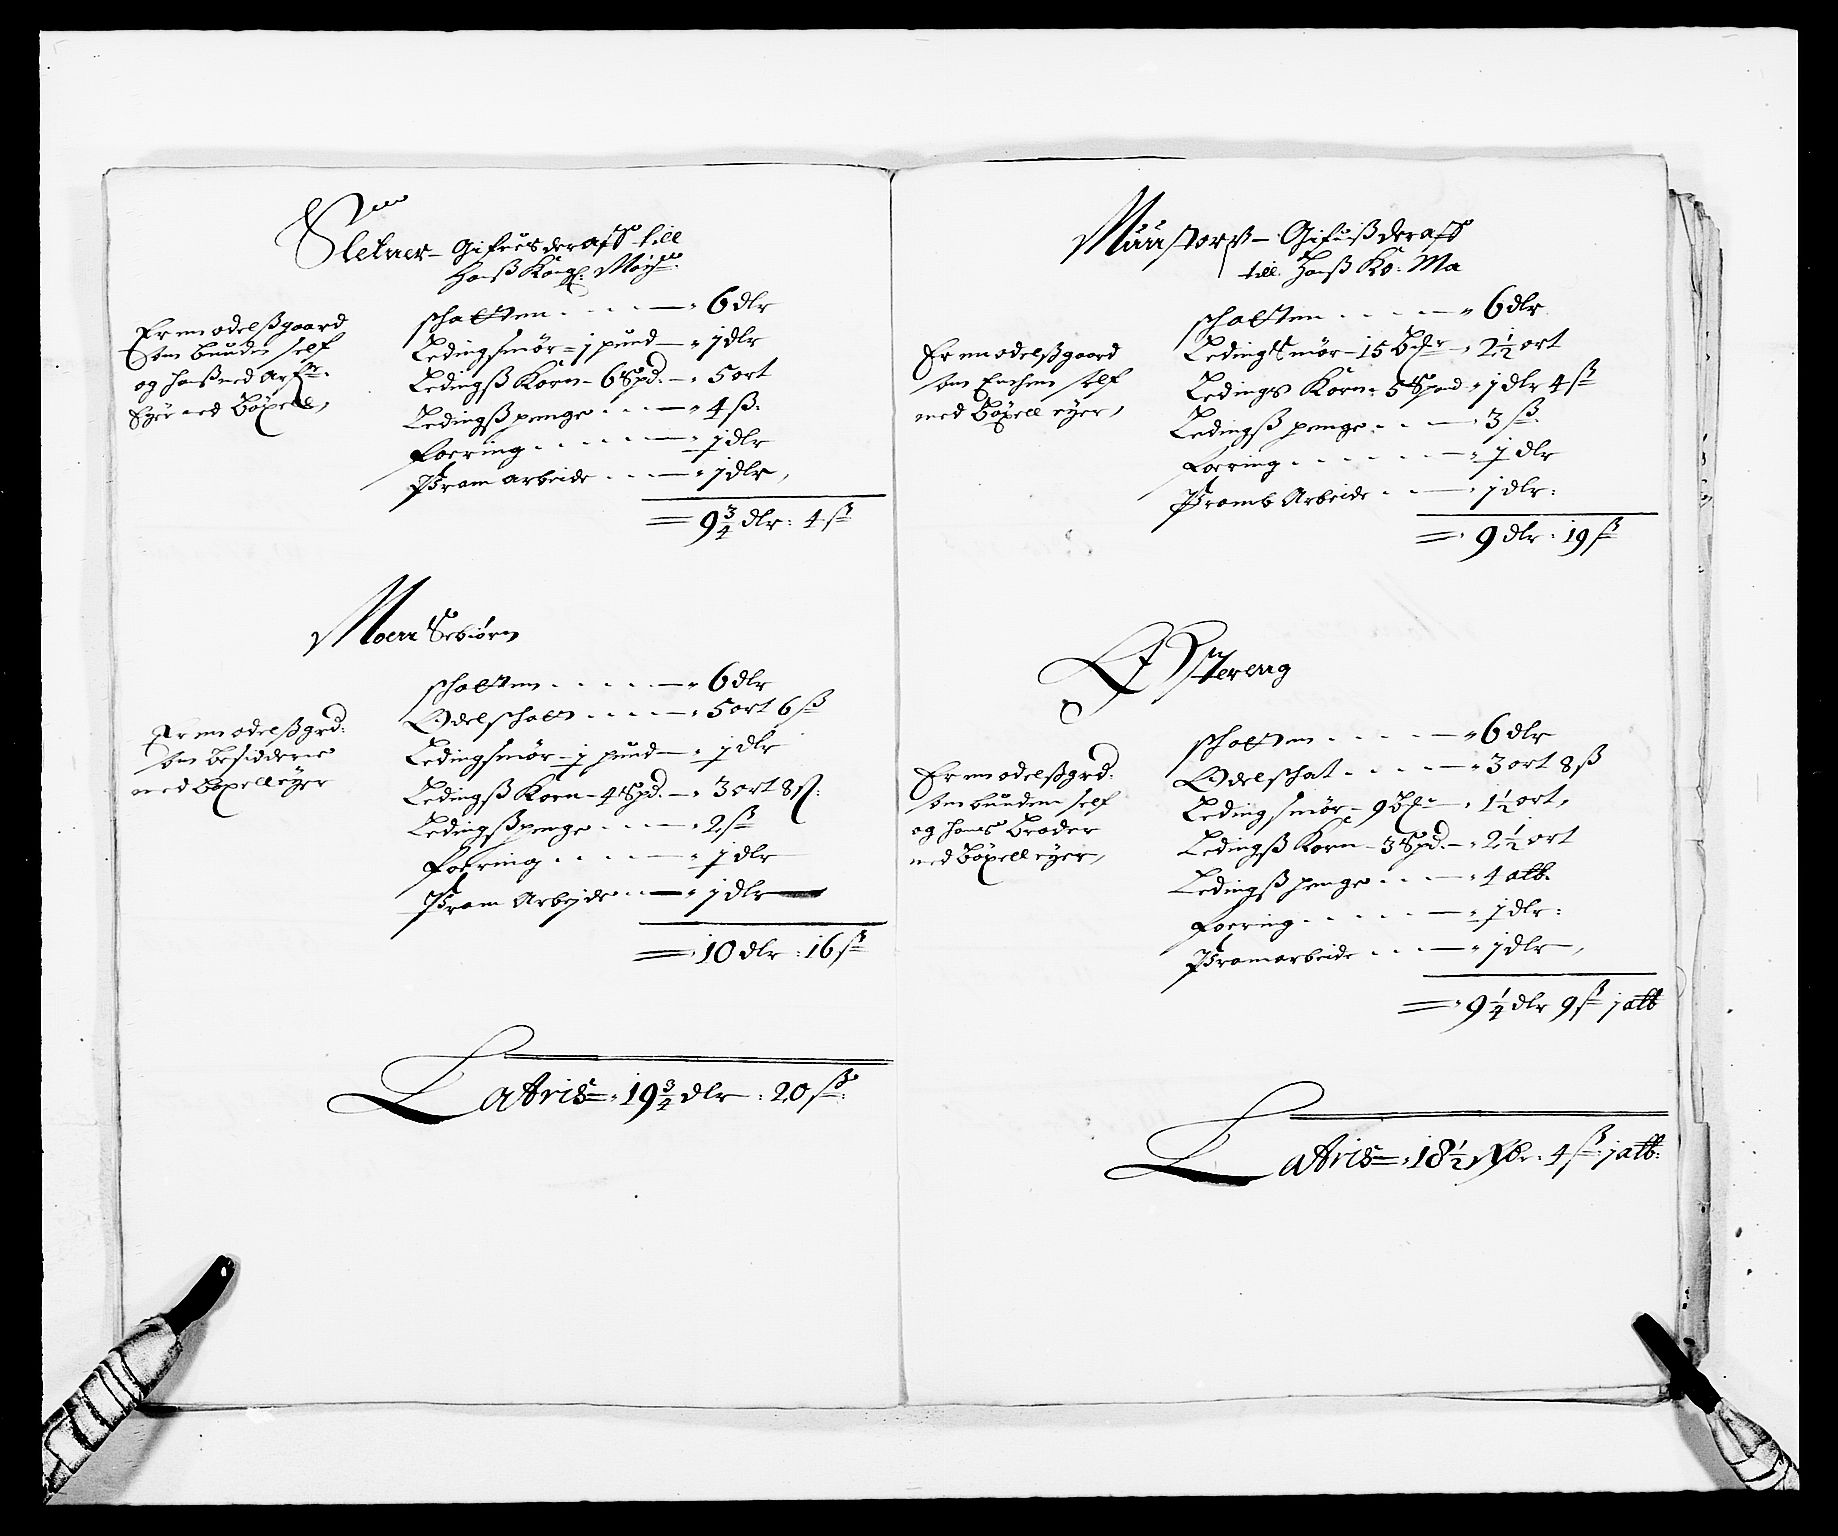 Sletner – Gifues deraff till
Hanß Kongl: Mayst:
Er en odelßgaard
som bunden self
og hanß med Arf:
Eyer med Bøxell,
schatten . . . . — 6 dlr
Ledingsmör = 1 pund — 1 dlr
Ledingß Korn – 6 Spd. — 5 ort
Ledingß penge . . . — 4 ß.
foering . . . . . — 1 dlr
Fram arbeide . . . — 1 dlr,
= 9 3/4 dlr : 4 ß
Moen Esbiörn
Er en odelßgrd:
som besidderne
med Boxell eyer
schatten . . . . . — 6 dlr
Odelschatt . . . . — 5 ort 6 ß
Ledingsmör – 1 pund — 1 dlr
Ledingß Korn – 4 Spd. — 3 ort 8 ß:
Ledingß penge . . . — 2 ß
foering . . . . . — 1 dlr
Fram Arbejde . . — 1 dlr
= 10 dlr : 16 ß
Lattris = 19 3/4 dlr : 20 ß:
Muustorp – Gifuß deraff
till Hanß Ko: Ma
Er en odelßgaard
som Enchen self
med Böxell eyer,
schatten . . . . . — 6 dlr
Ledingsmör – 15 — 2 1/2 ort
Ledings Korn – 5 Spnd – 1 dlr 4 ß
Ledingß penge . . — 3 ß.
foering . . . . . . — 1 dlr
Framb Arbeide . . — 1 dlr:
= 9 dlr : 19 ß
Østereng
Er en odelßgrd:
som bundem self
og hans Broder
med Böxell eyer,
schatten . . . . . — 6 dlr
Odelschat . . . . — 3 ort 8 ß
Ledingsmör – 9 — 1 1/2 ort,
Ledingß Korn – 3 Spd. — 2 1/2 ort
Ledingß penge . . . — 4 alb.
foering . . . . . — 1 dlr:
Framarbeide . . . — 1 dlr,
= 9 1/4 dlr 9 ß 1 alb
Lattris = 18 1/2 Rdr : 4 ß : 1 alb: